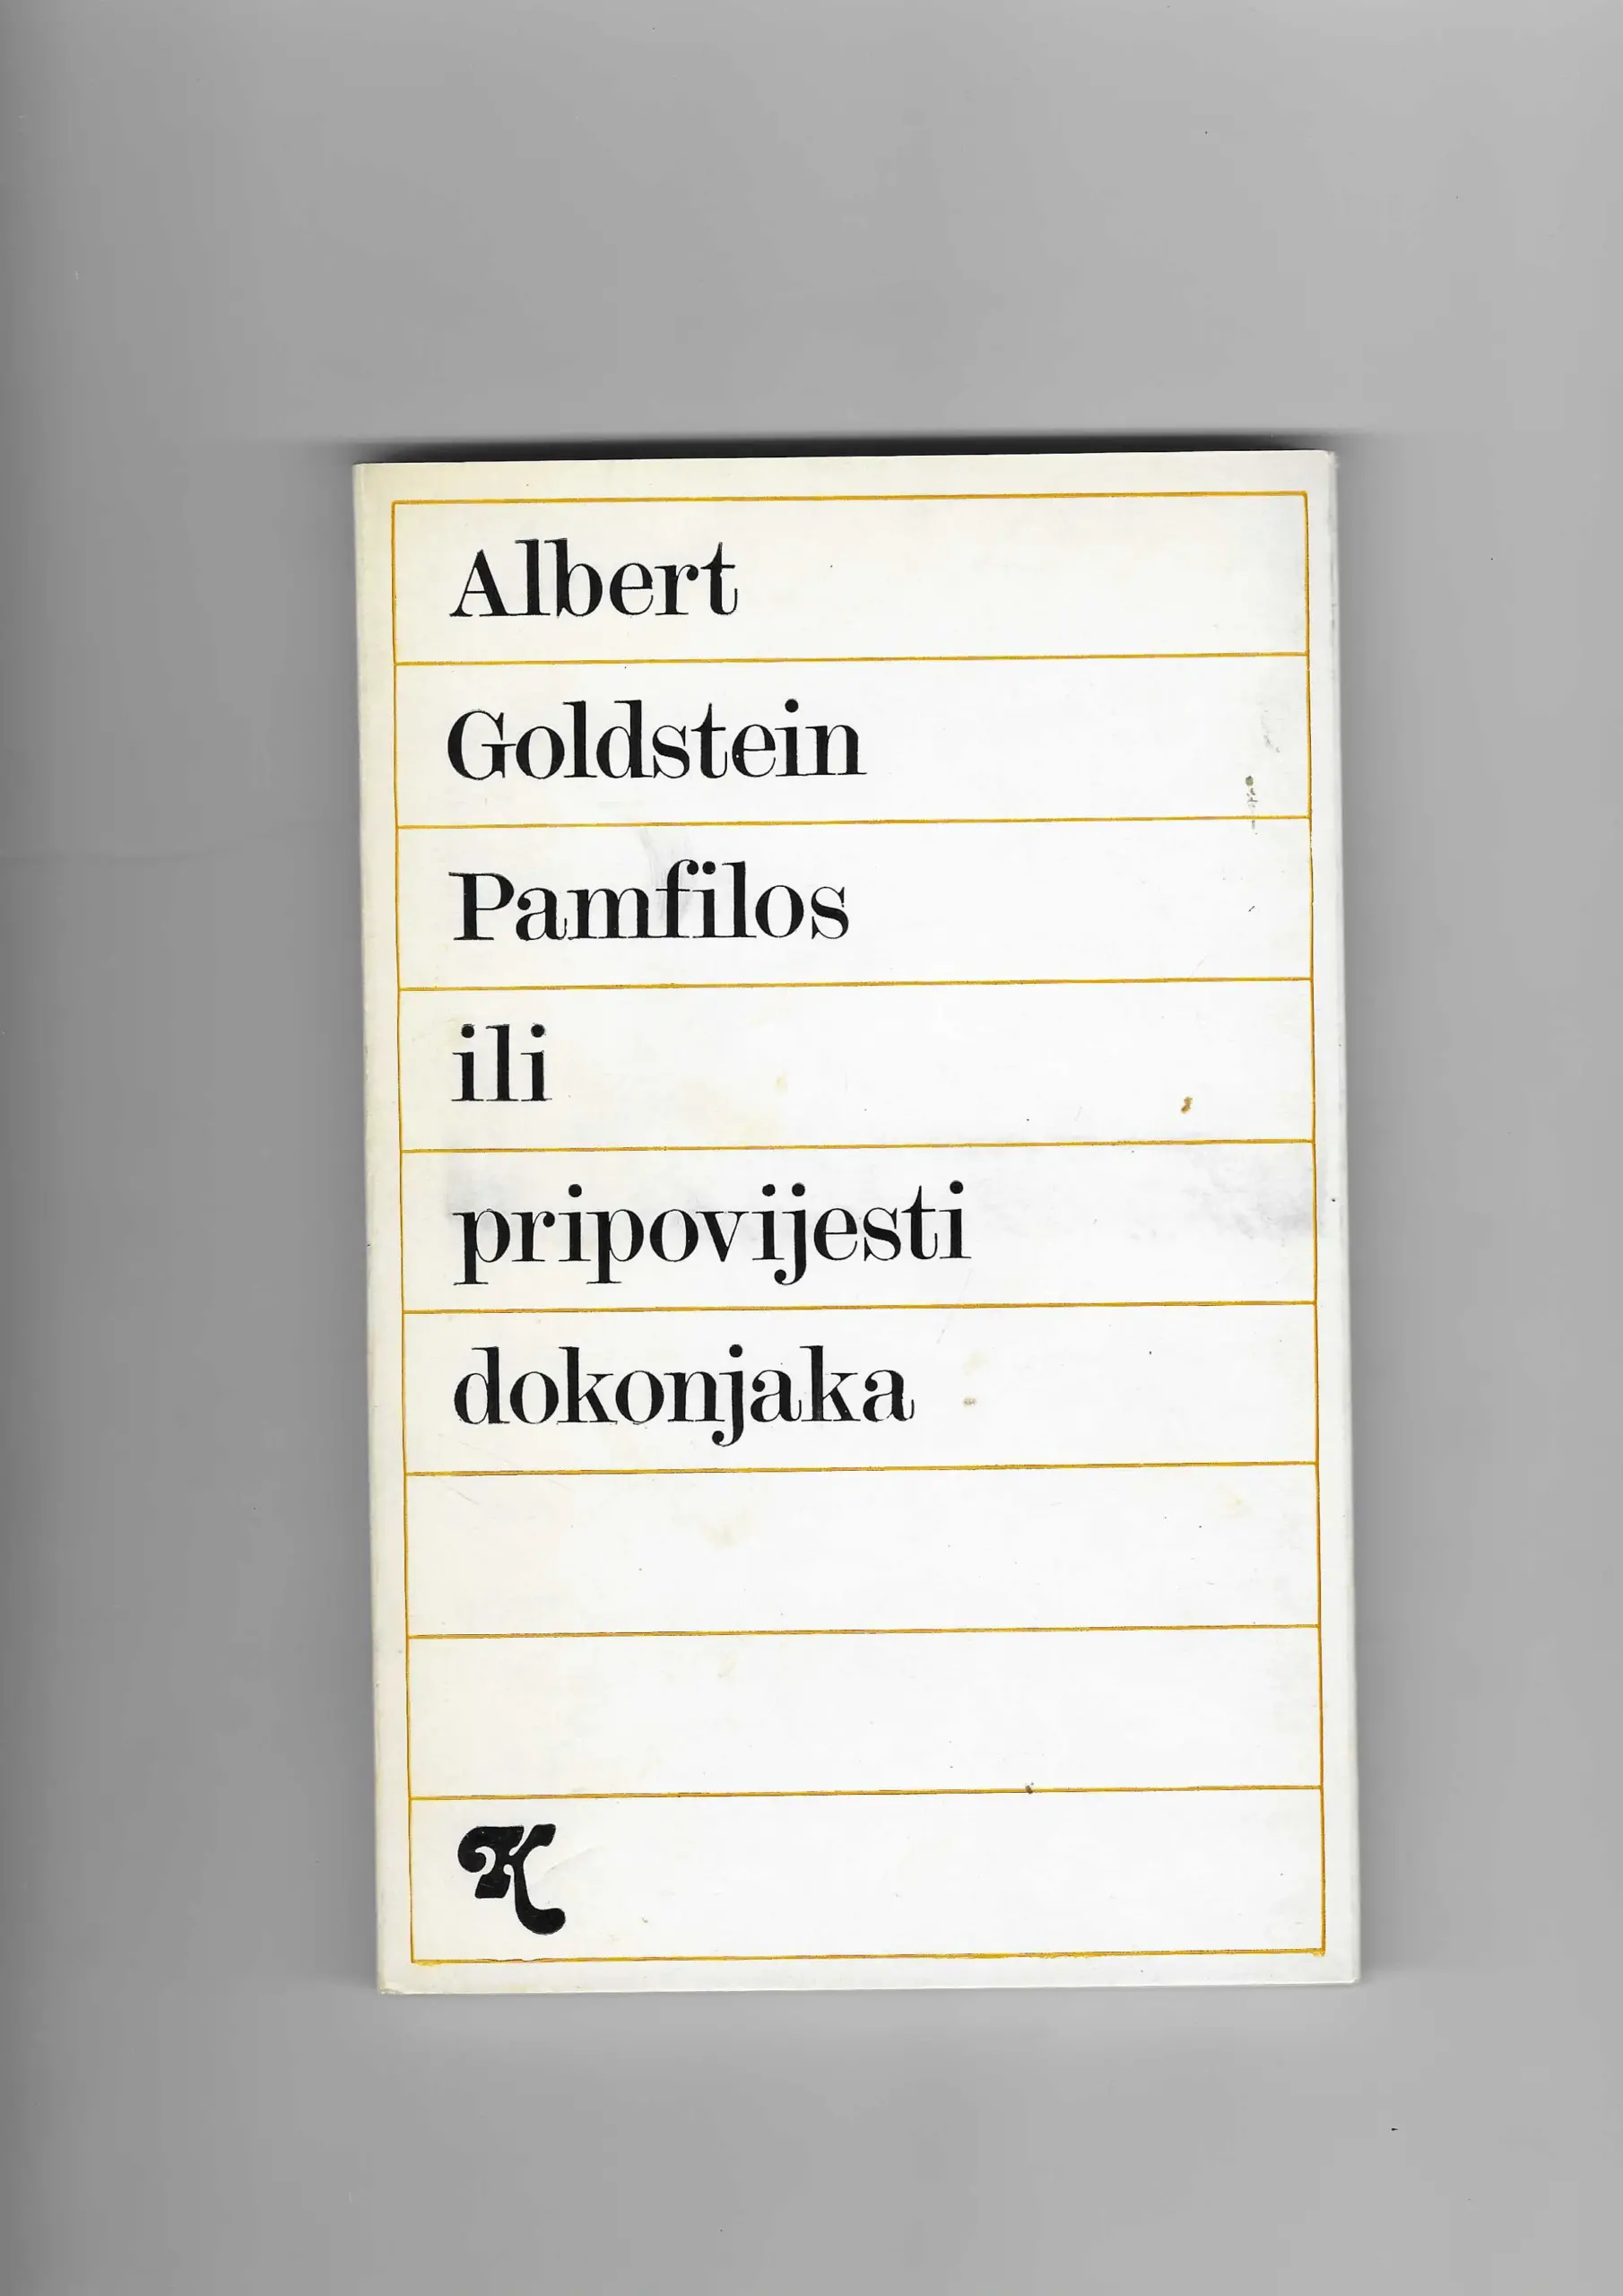 Albert
Goldstein
Pamfilos
ili
pripovijesti
dokonjaka
K